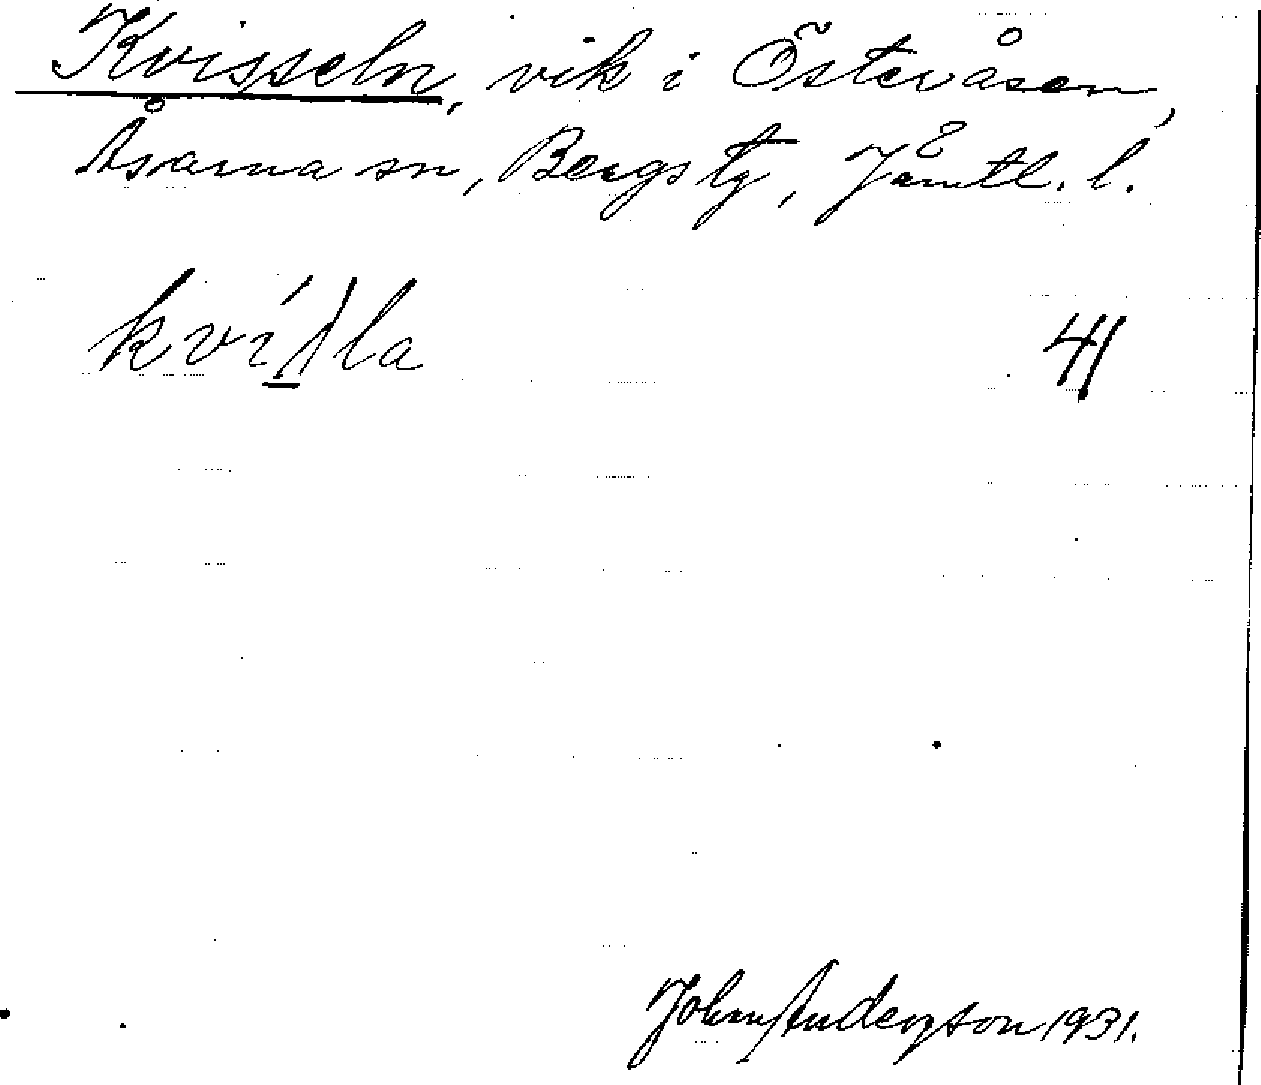 Kvisseln, vik i Österåsen,
Åsarna sn, Bergs tg, Jämtl. l.
41
John Andersson 1931.